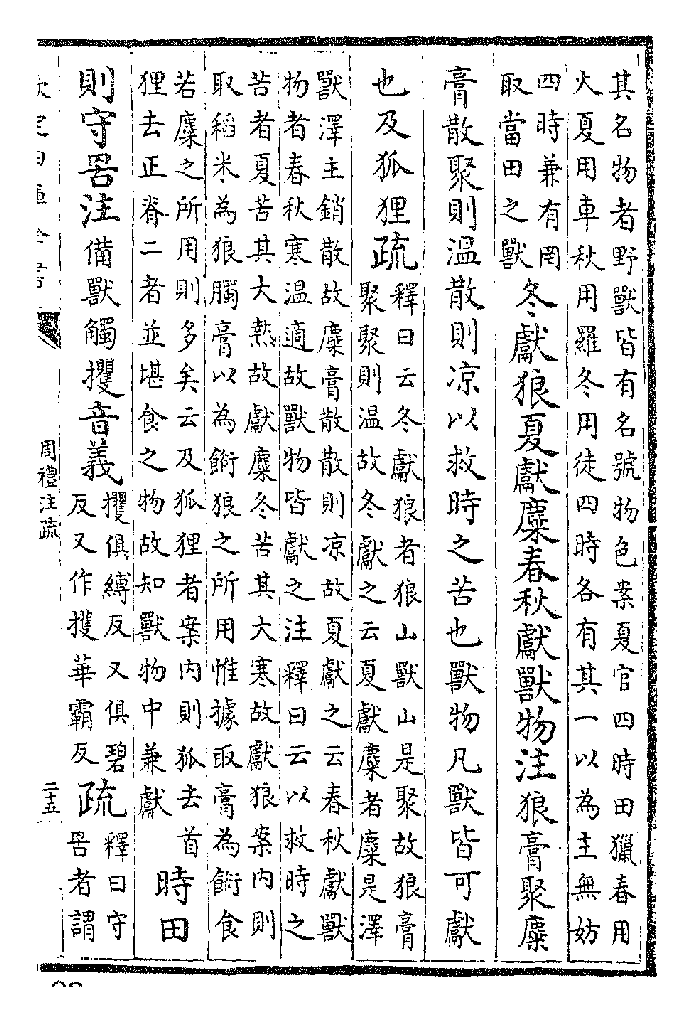 其名物者野獸皆有名號物色案夏官四時田獵春用
火夏用車秋用羅冬用徒四時各有其一以為主無妨
四時兼有罔
取當田之獸
冬獻狼夏獻麋春秋獻獸物注狼膏聚麋
膏散聚則温散則凉以救時之苦也獸物凡獸皆可獻
也及狐狸疏
釋曰云冬獻狼者狼山獸山是聚故狼膏
聚聚則温故冬獻之云夏獻麋者麋是澤
獸澤主銷散故麋膏散散則凉故夏獻之云春秋獻獸
物者春秋寒温適故獸物皆獻之注釋曰云以救時之
苦者夏苦其大熱故獻麋冬苦其大寒故獻狼案内則
取稻米為狼臅膏以為餰狼之所用惟據取膏為餰食
若麋之所用則多矣云及狐狸者案内則狐去首
狸去正脊二者並堪食之物故知獸物中兼獻
時田
則守罟注備獸觸攫音義
攫俱縛反又俱碧
反又作擭華霸反
疏
釋曰守
罟者謂
周禮注疏
二十五